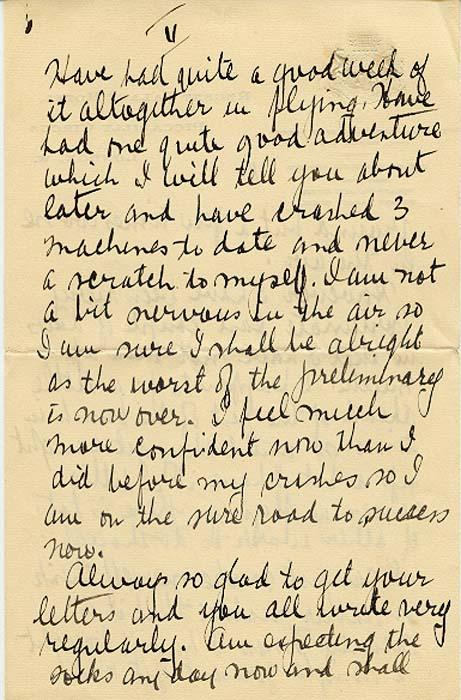 11
Have had quite a good week of
it altogether in flying. Have
had one quite good adventure
which I will tell you about
later and have crashed 3
machines to date and never
a scratch to myself. I am not
a bit nervous in the air so
I am sure I shall be alright
as the worst of the preliminary
is now over. I feel much
more confident now than I
did before my crashes so I
am on the sure road to success
now.
Always so glad to get your
letters and you all write very
regularly. Am expecting the
socks any day now and shall